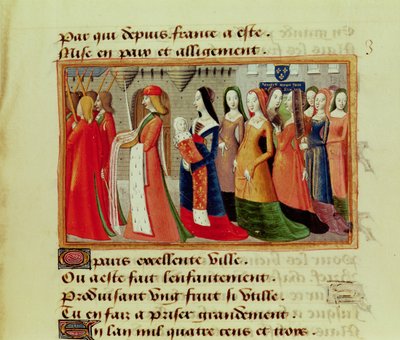 Par qui depuis france a este
Mise en paix et alligement.
3
O paris excellente ville.
Ou a este fait lenfantement.
Produisant vng fruit si vtille.
Tu en fais a priser grandement.
En lan mil quatre cens et trois.